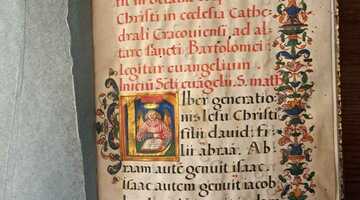 in octava
Christi in ecclesia Cathe
drali Cracoviensi, ad al
tare sancti Bartolomei
legitur euangelium
Iniciũ Scti euãgelii S. math
Liber generatio
nis iesu Christi
filii dauid: fi
lii abraã. Ab
raam autẽ genuit isaac.
isaac autem genuit iacob